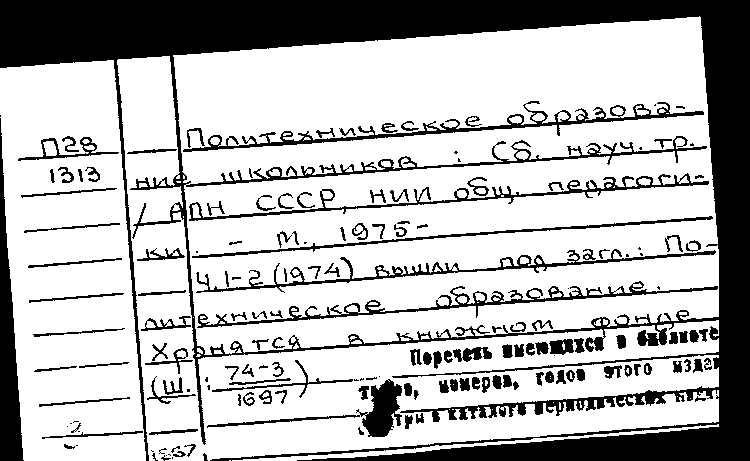 П28
1313
Политехническое образова-
ние школьников : Сб. науч. тр.
/ АПН СССР, НИИ общ. педагоги-
ки. - М., 1975-
Ч.1-2 (1974) вышли под загл.: По-
литехническое образование.
Хранятся в книжном фонде
(Ш. : 74-3
1697 ).
Перечень имеющихся в библиоте
номеров, годов этого издан
в каталоге периодических
2
1887